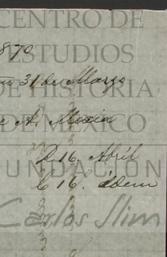 CENTRO DE
1870
ESTUDIOS
31 de Marzo
DE HISTORIA
A. Mexico
DE MÉXICO
D 16. Abril
C 16. idem
FUNDACIÓN
Carlos Slim